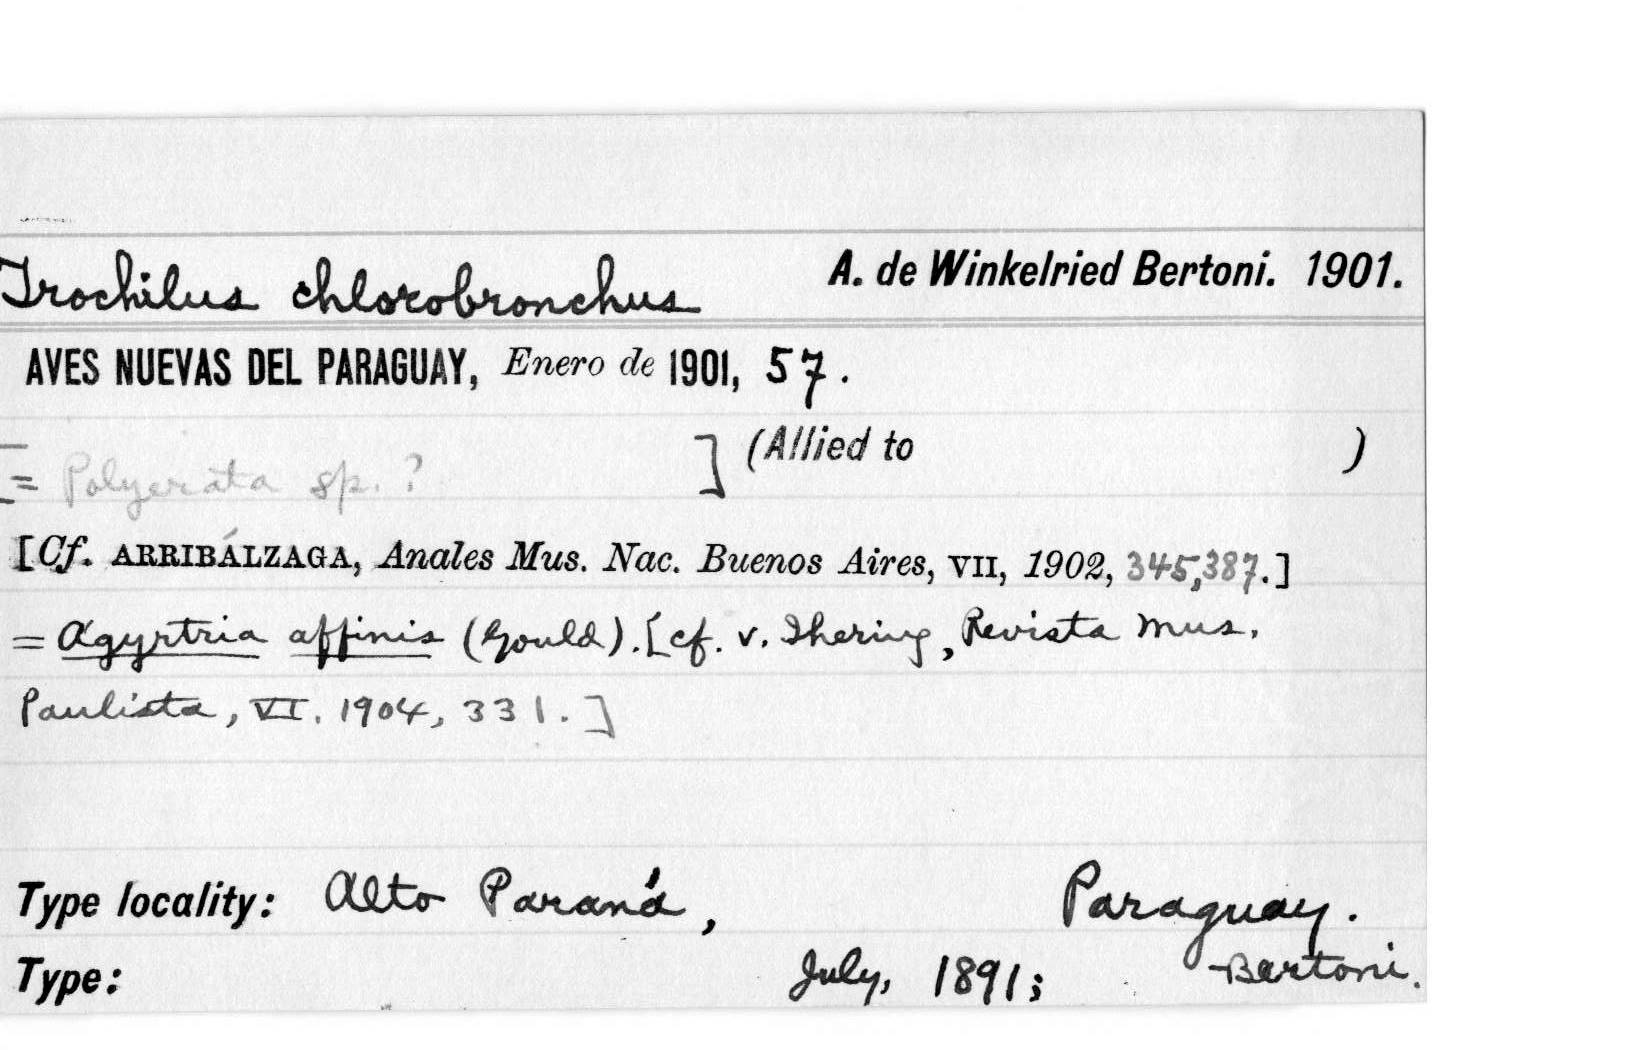 Trochilus chlorobronchus A. de Winkelried Bertoni. 1901.
AVES NUEVAS DEL PARAGUAY, Enero de 1901, 57.
[= Polyerata sp. ? ] (Allied to )
[Cf. ARRIBÁLZAGA, Anales Mus. Nac. Buenos Aires, VII, 1902, 345,387.]
= Agyrtria affinis (Gould). [cf. v. Ihering, Revista Mus.
Paulista, VI. 1904, 331.]
Type locality: Alto Paraná, Paraguay.
Type: July, 1891; Bertoni.